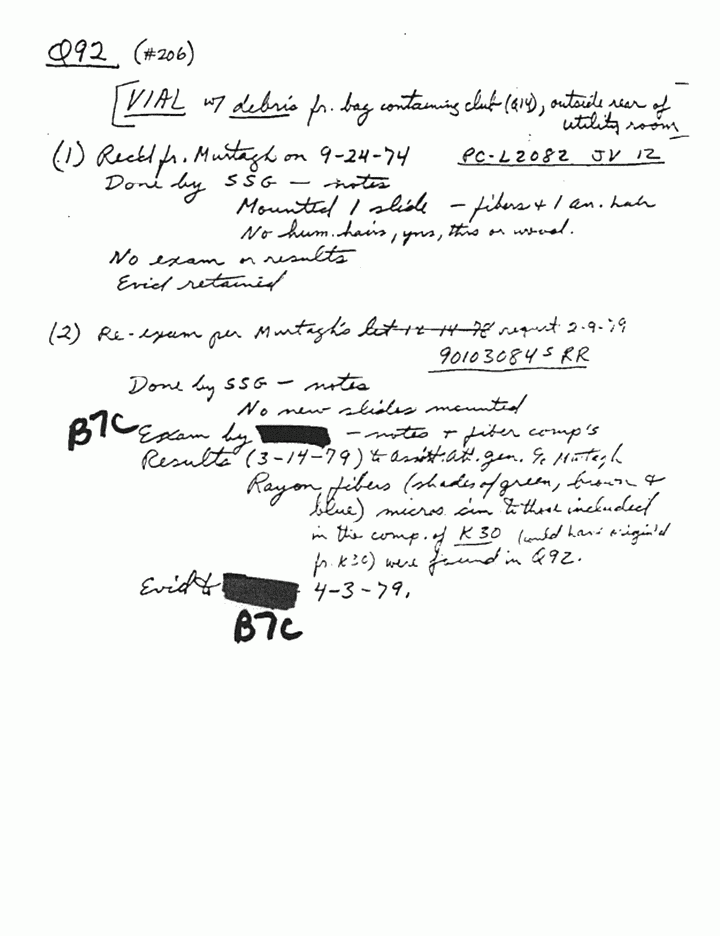 Q92 (#206)
[VIAL w/ debris fr. bag containing club (Q14), outside rear of
utility room
(1) Rec'd fr. Murtagh on 9-24-74 PC-L2082 JV 12
Done by SSG — notes
Mounted 1 slide — fibers + 1 an. hair
No hum. hairs, yns, thds or wood.
No exam or results
Evid retained
(2) Re-exam per Murtagh's let 12-14-78 request 2-9-79
90103084 S RR
Done by SSG — notes
No new slides mounted
B7C Exam by — notes + fiber comp's
Results (3-14-79) to assist. att. gen. Murtagh
Rayon fibers (shades of green, brown &
blue) micros. sim to those included
in the comp. of K30 (could have origin'd
fr. K30) were found in Q92.
Evid to 4-3-79.
B7C